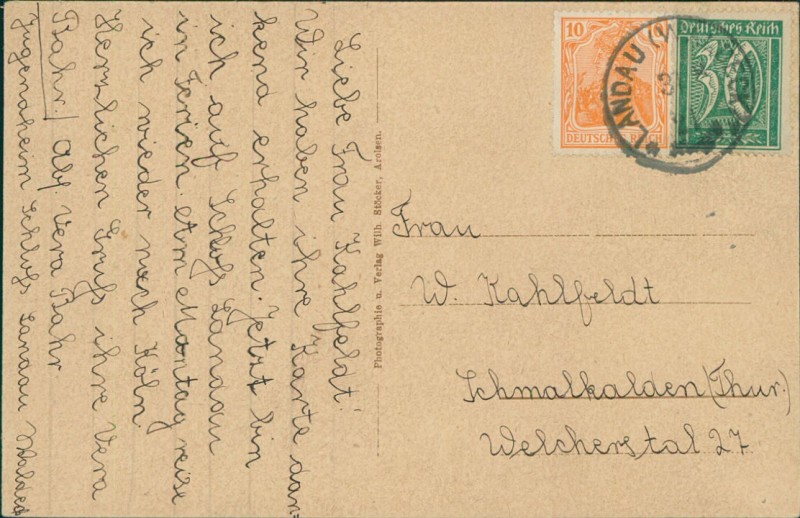 Liebe Frau Kahlfeldt!
Wir haben ihre Karte dan=
kend erhalten. Jetzt bin
ich auf Schloß Landau
in Ferien. Am Montag reise
ich wieder nach Köln
Herzlichen Gruß ihre Vera
Bahr./ Abs. Vera Bahr
Jugendheim Schloß Landau Waldeck
Photographie u. Verlag Wilh. Stöcker, Arolsen.
10
DEUTSCHES REICH
Deutsches Reich
30
LANDAU (W
Frau
W. Kahlfeldt
Schmalkalden (Thur.)
Welcherstal 27